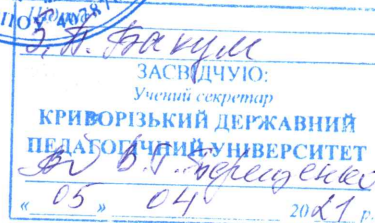 З.П. Бакум
ЗАСВІДЧУЮ:
Учений секретар
КРИВОРІЗЬКИЙ ДЕРЖАВНИЙ
ПЕДАГОГІЧНИЙ УНІВЕРСИТЕТ
В.Г. Терещенко
« 05 » 04 2021 р.